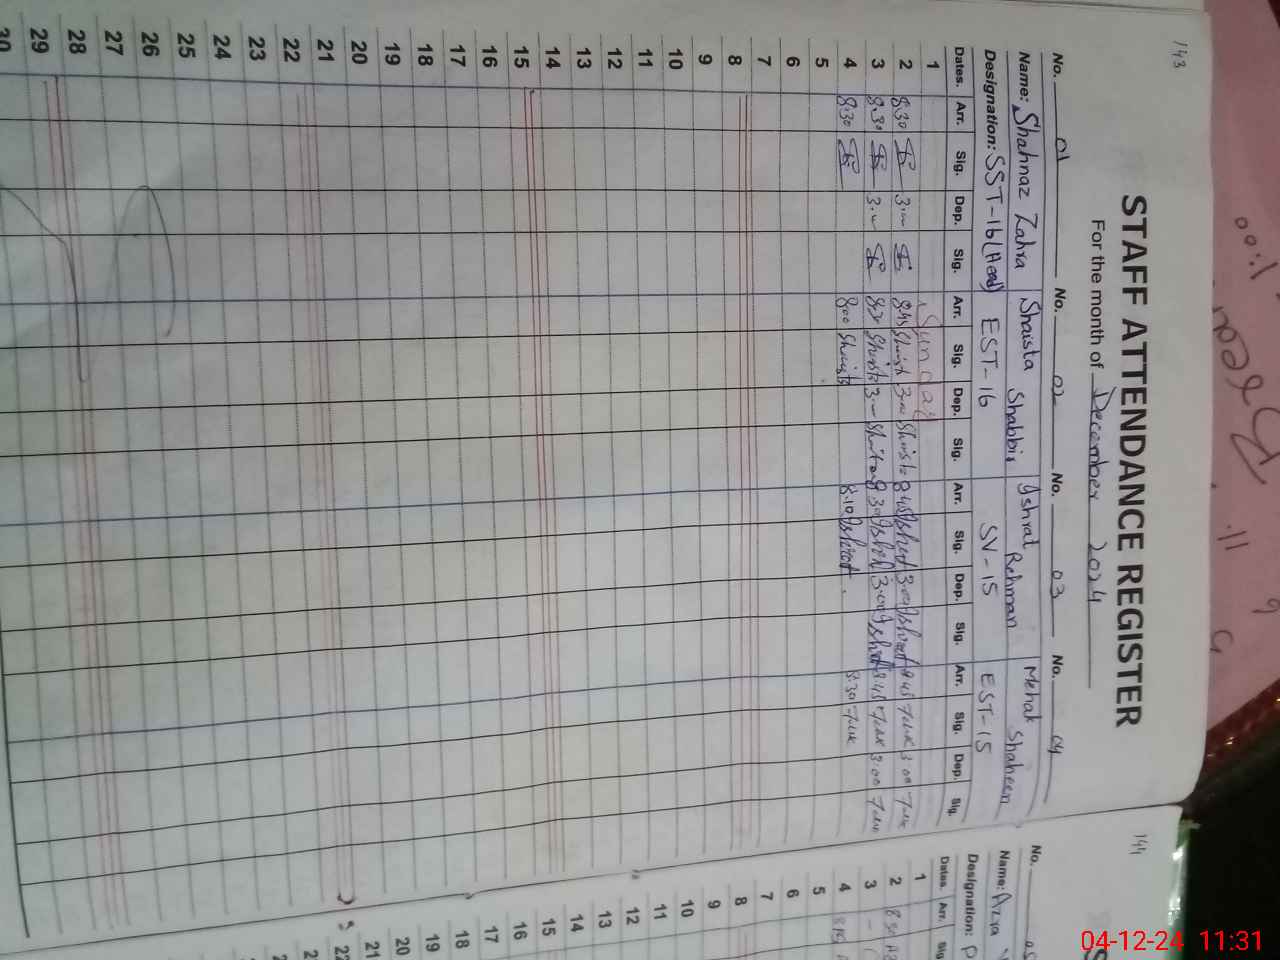 143
STAFF ATTENDANCE REGISTER
For the month of December 2024
No. 01 No. 02 No. 03 No. 04
Name: Shahnaz Zahra Shaista Shabbir Ishrat Rehman Mehak Shaheen
Designation: SST-16 (Head) EST-16 SV-15 EST-15
Dates. Arr. Sig. Dep. Sig. Arr. Sig. Dep. Sig. Arr. Sig. Dep. Sig. Arr. Sig. Dep. Sig.
1 Sunday
2 8:30 3:00 8:45 Shaista 3:00 Shaista 8:45 Ishrat 3:00 Ishrat 8:45 3:00
3 8:30 3:00 8:30 Shaista 3:00 Shaista 8:30 Ishrat 3:00 Ishrat 8:45 3:00
4 8:30 8:00 Shaista 8:10 Ishrat 8:30
5
6
7
8
9
10
11
12
13
14
15
16
17
18
19
20
21
22
23
24
25
26
27
28
29
30
144
No.
Name: Azra
Designation:
Dates. Arr.
1
2 8:30
3
4 8:15
5
6
7
8
9
10
11
12
13
14
15
16
17
18
19
20
21
22
04-12-24 11:31